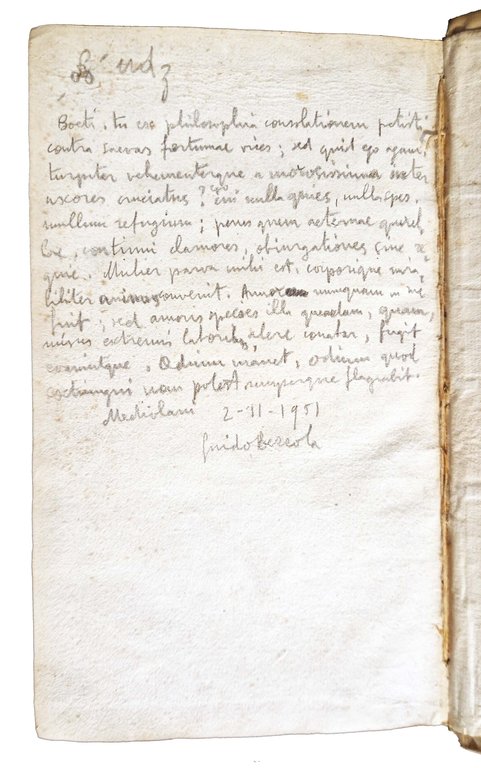 Boeti, tu ex philosophia consolationem petisti
contra saevas fortunae vices; sed quid ego agam,
turpiter vehementerque a morosissima inter
uxores cruciatus? cui nulla quies, nulla spes,
nullum refugium; penes quem aeternae querel-
lae, continui clamores, obiurgationes sine re-
quie. Mulier parva mihi est, corporique mira-
biliter animus convenit. Amor numquam in me
fuit; sed amoris species illa quaedam, quam,
mixus extremi laboris, conatur, fugit
evanuitque. Odium manet, odium quod
extingui non potest semperque flagrabit.
Mediolani 2-11-1951
Guido Bezzola